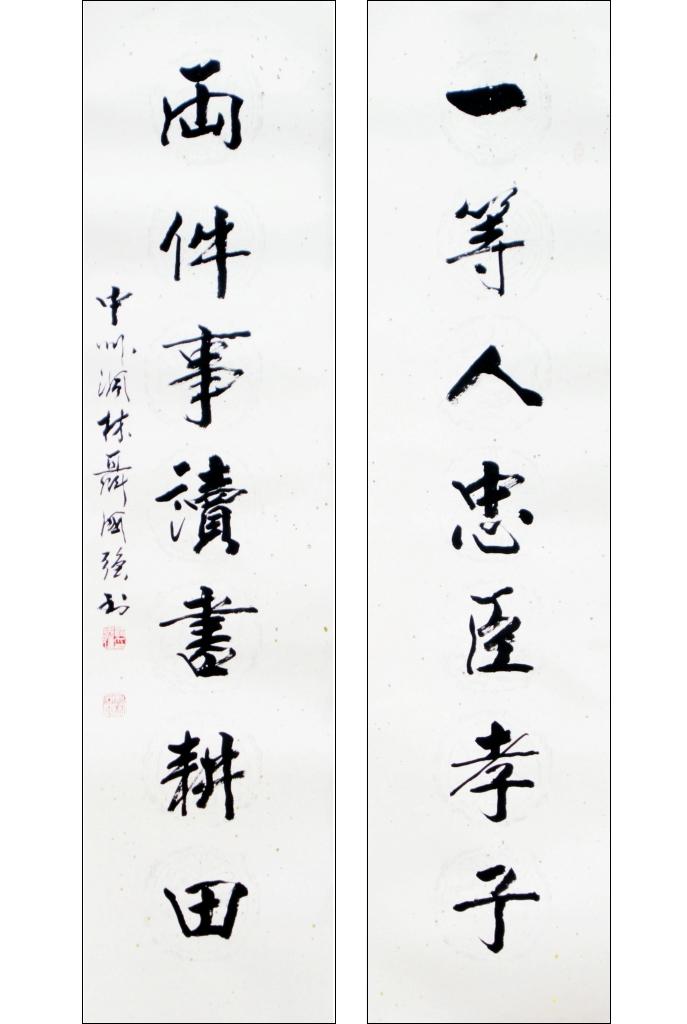 一等人忠臣孝子
兩件事讀書耕田
中州洞林聶國强书